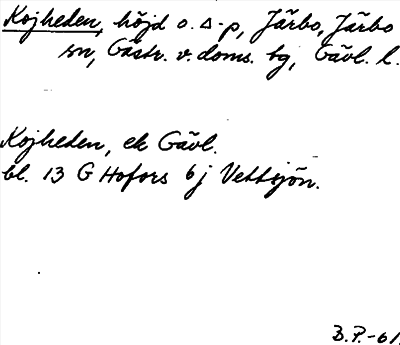 Kojheden, höjd o. ∆-p, Järbo, Järbo
sn, Gästr. v. doms. bg, Gävl. l.
Kojheden, ek Gävl.
bl. 13 G Hofors 6 j Vettsjön.
B.P.-61